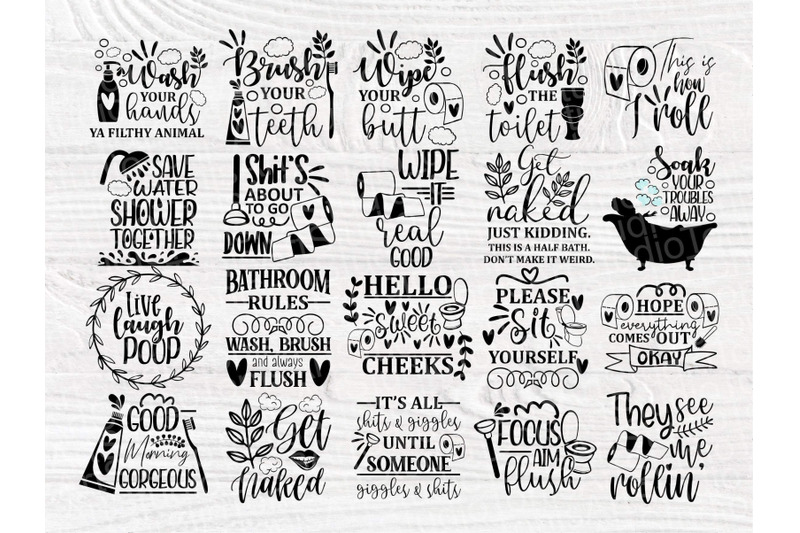 Wash
YOUR
hands
YA FILTHY ANIMAL
Brush
YOUR
teeth
Wipe
YOUR
butt
flush
THE
toilet
This is
how
I roll
SAVE
WATER
SHOWER
TOGETHER
Shit's
ABOUT
TO GO
DOWN
WIPE
IT
real
GOOD
Get
naked
JUST KIDDING.
THIS IS A HALF BATH.
DON'T MAKE IT WEIRD.
Soak
YOUR
TROUBLES
AWAY
Live
laugh
POOP
BATHROOM
RULES
WASH, BRUSH
and always
FLUSH
HELLO
Sweet
CHEEKS
PLEASE
Sit
YOURSELF
HOPE
everything
COMES OUT
OKAY
GOOD
Morning
GORGEOUS
Get
Naked
IT'S ALL
shits & giggles
UNTIL
SOMEONE
giggles & shits
FOCUS
AIM
flush
They see
me
rollin'